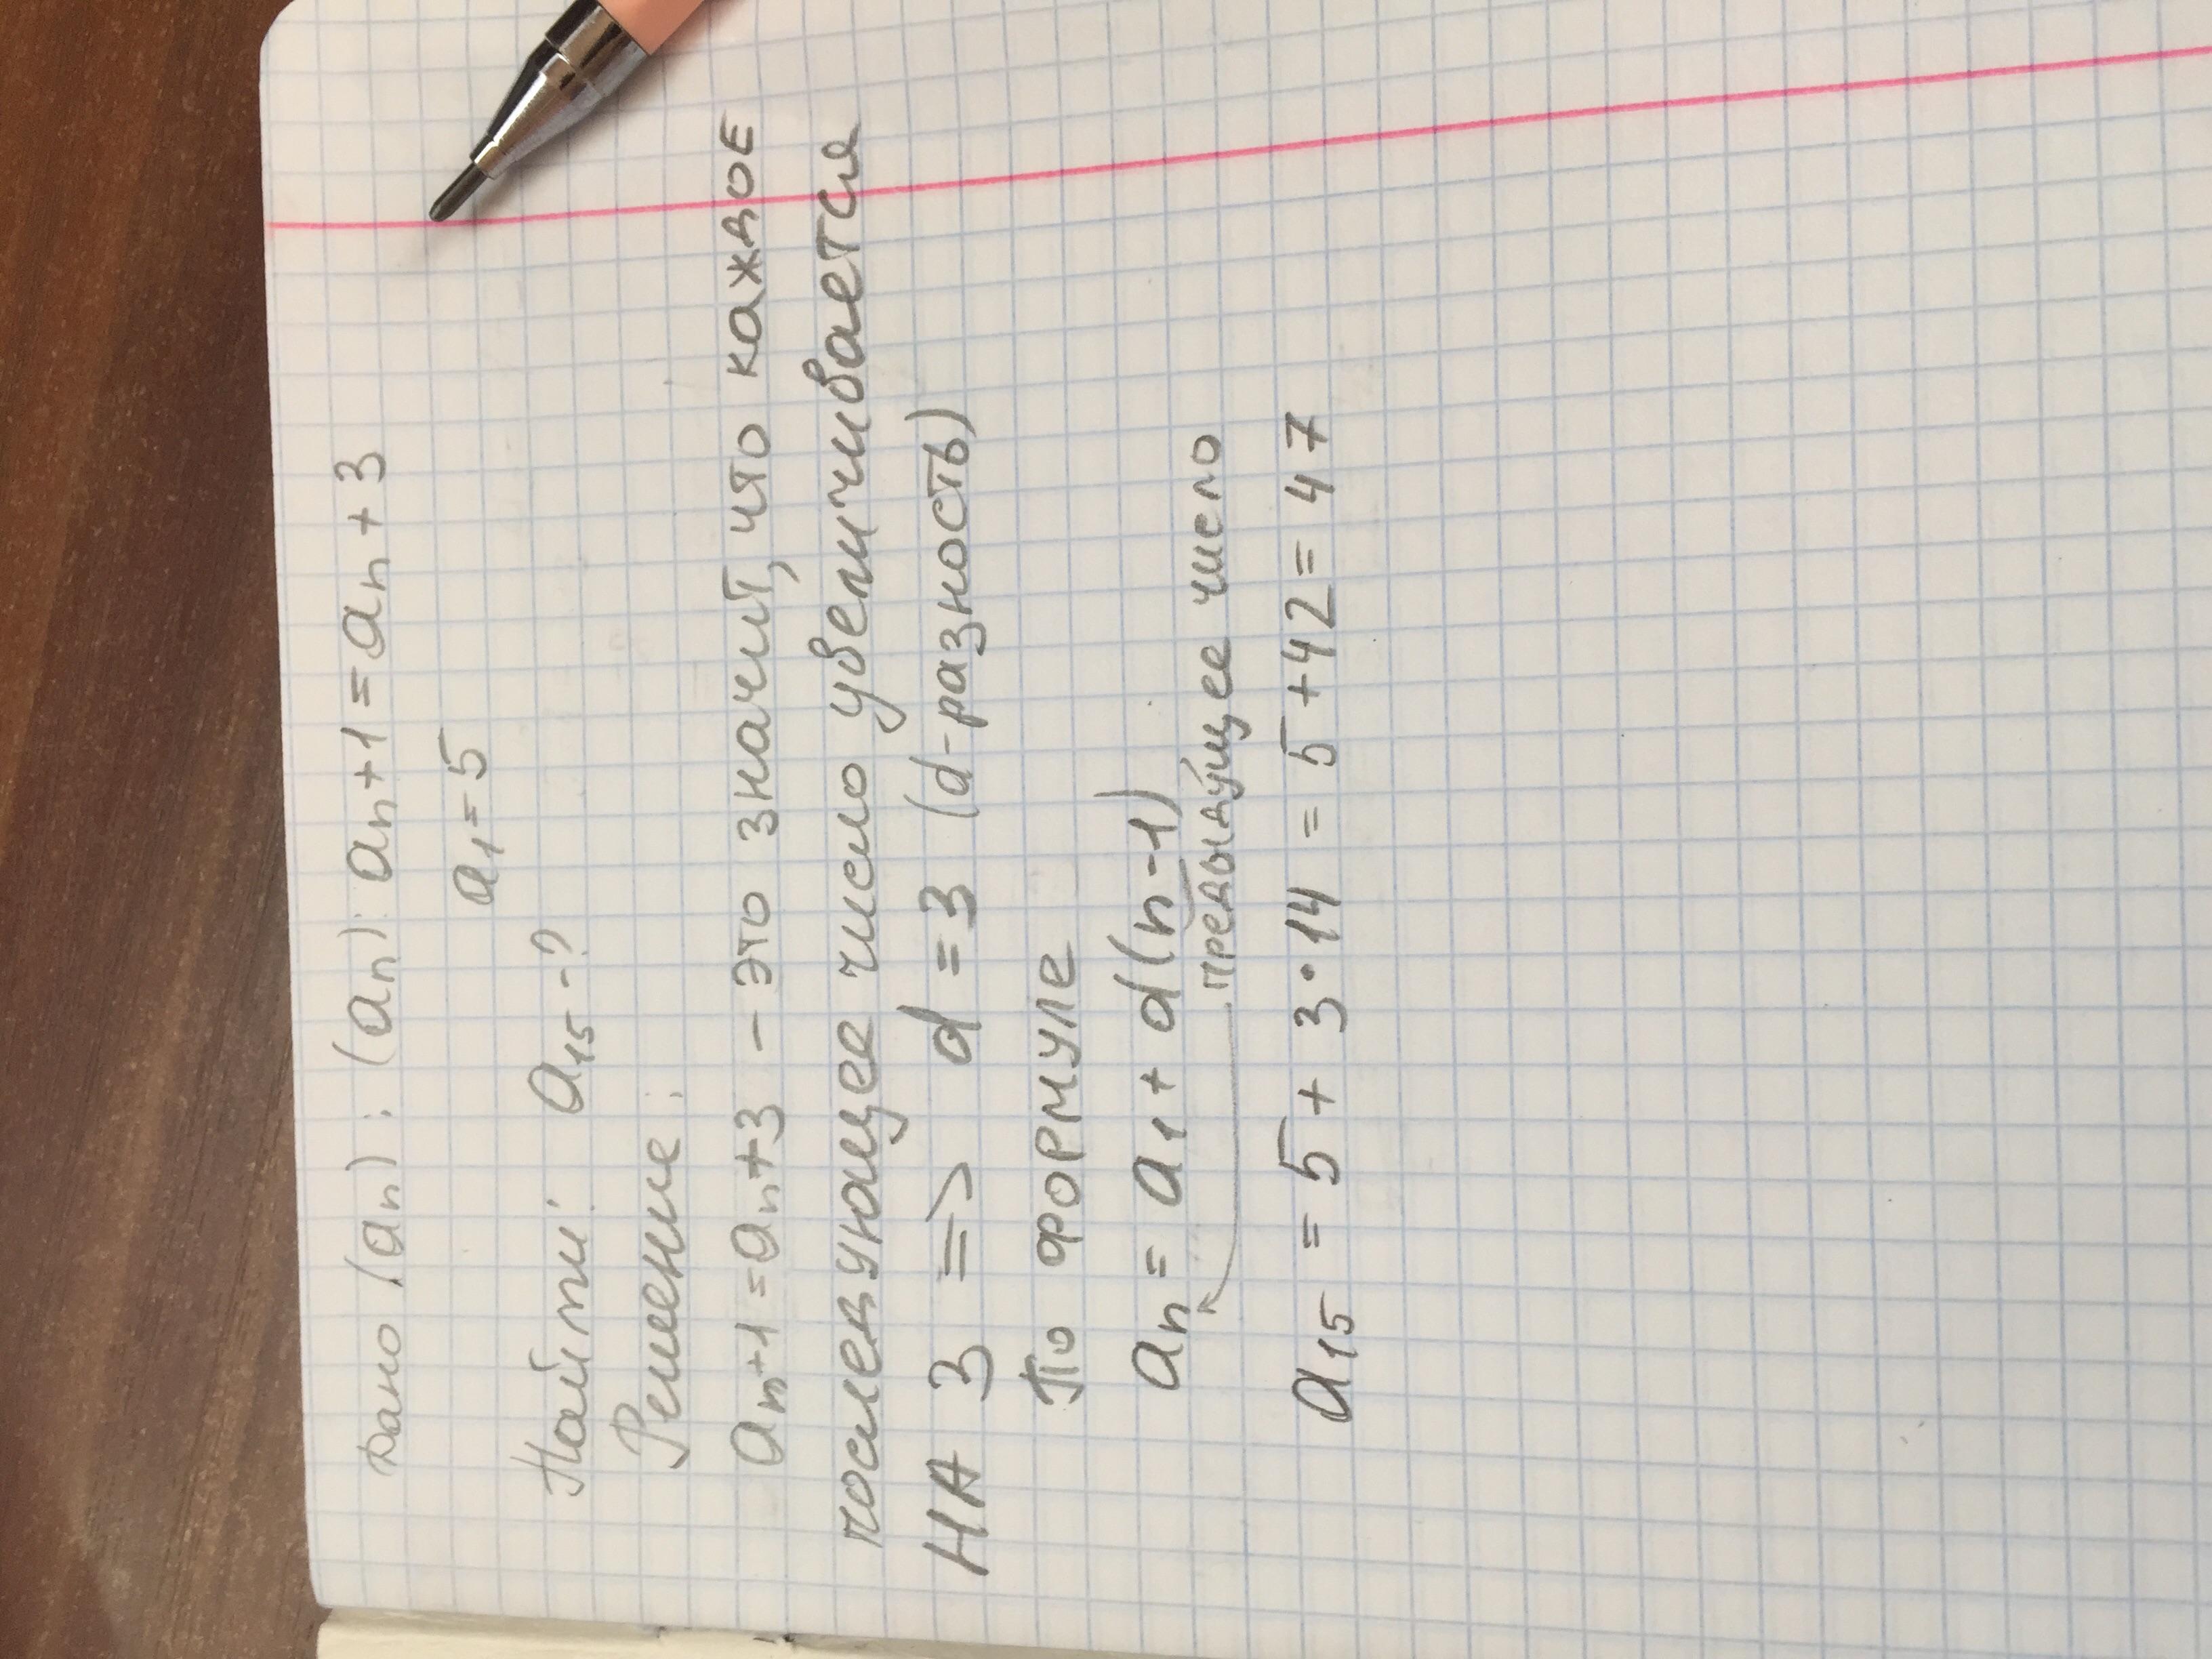 Дано (an): (an): an+1=an+3
a1=5
Найти: a15-?
Решение:
an+1=an+3 - это значит, что каждое
последующее число увеличивается
НА 3 => d=3 (d-разность)
По формуле
an = a1 + d(n-1)
предыдущее число
a15 = 5 + 3·14 = 5+42=47